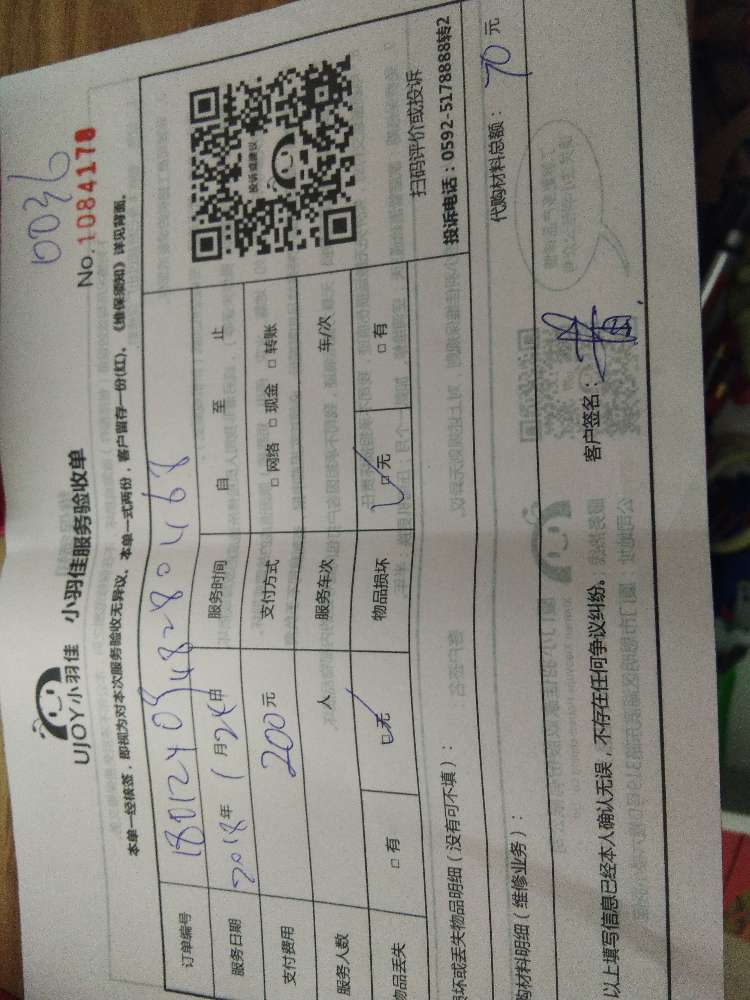 0036
No.1084178
UJOY小羽佳 小羽佳服务验收单
本单一经核签，即视为对本次服务验收无异议。本单一式两份，客户留存一份(红)。《维保须知》详见背面。
订单编号
服务日期 2018年1月24日 服务时间 自 至 止
支付费用 200元 支付方式 □网络 □现金 □转账
服务人数 人 服务车次 车/次
物品丢失 □有 □无 物品损坏 □无 □有
投诉或建议
扫码评价或投诉
投诉电话：0592-5178888转2
损坏或丢失物品明细（没有可不填）：
购材料明细（维修业务）： 代购材料总额：70元
以上填写信息已经本人确认无误，不存在任何争议纠纷。 客户签名：